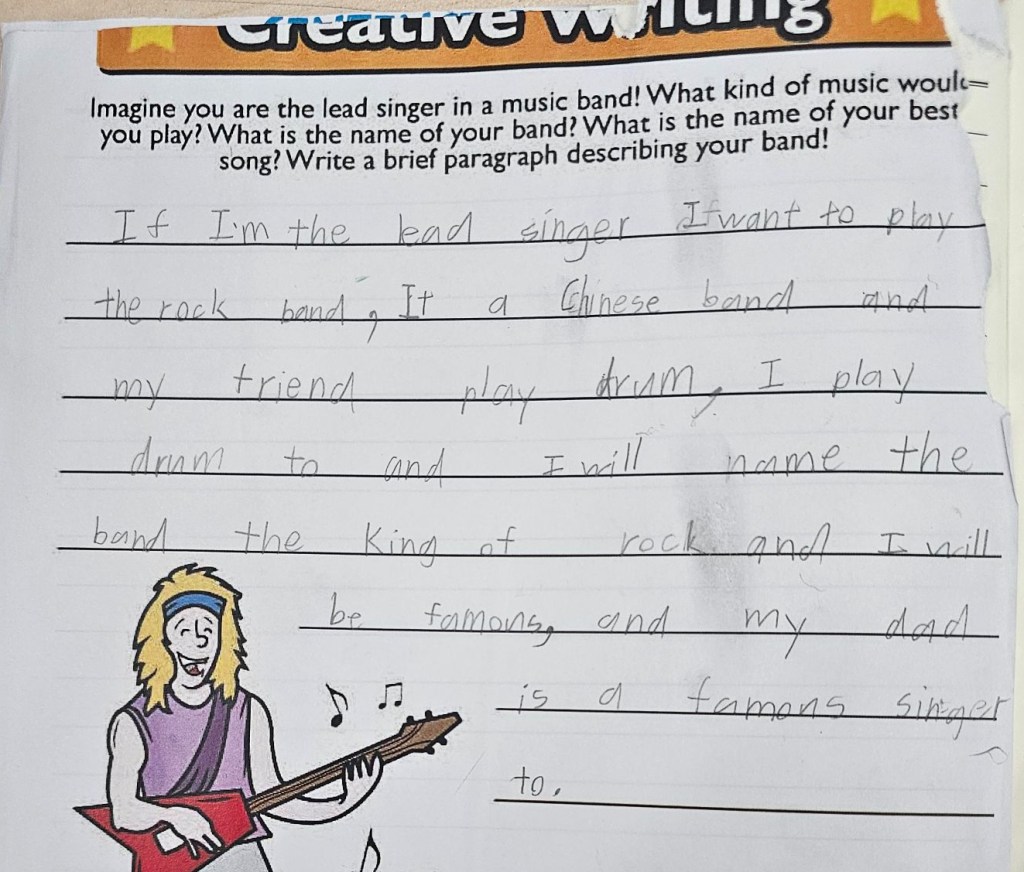 Creative Writing
Imagine you are the lead singer in a music band! What kind of music would
you play? What is the name of your band? What is the name of your best
song? Write a brief paragraph describing your band!
If I'm the lead singer I want to play
the rock band, It a Chinese band and
my friend play drum, I play
drum to and I will name the
band the King of rock and I will
be famous, and my dad
is a famous singer
to.